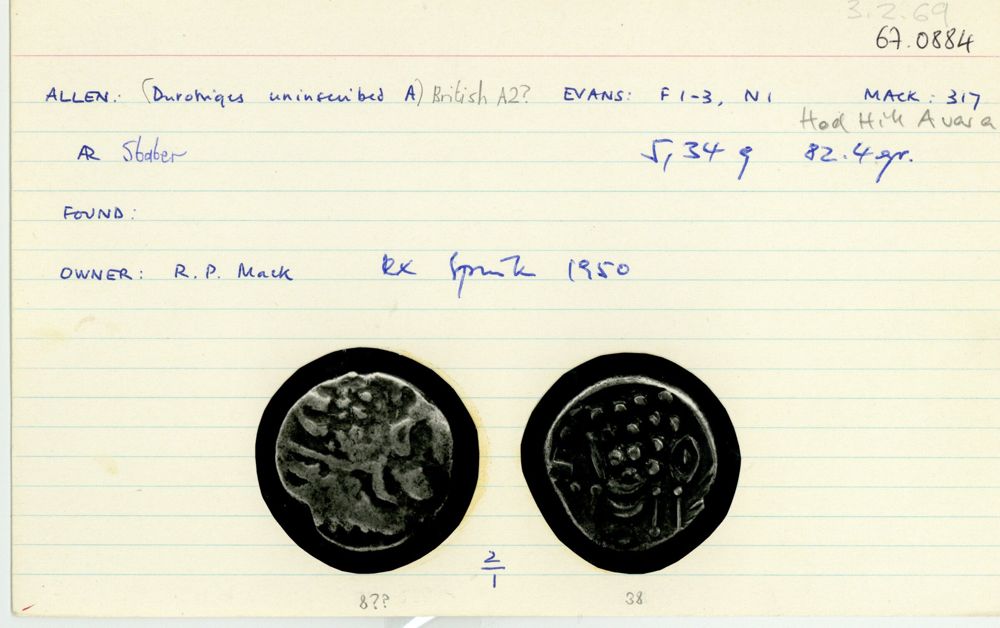 3.2.69
67.0884
ALLEN: (Durotriges uninscribed A) British A2? EVANS: F 1-3, N 1 MACK: 317
Hod Hill A var a
AR Stater 5,34 g 82.4 gr.
FOUND:
OWNER: R. P. Mack Ex Spink 1950
2
1
8?? 38